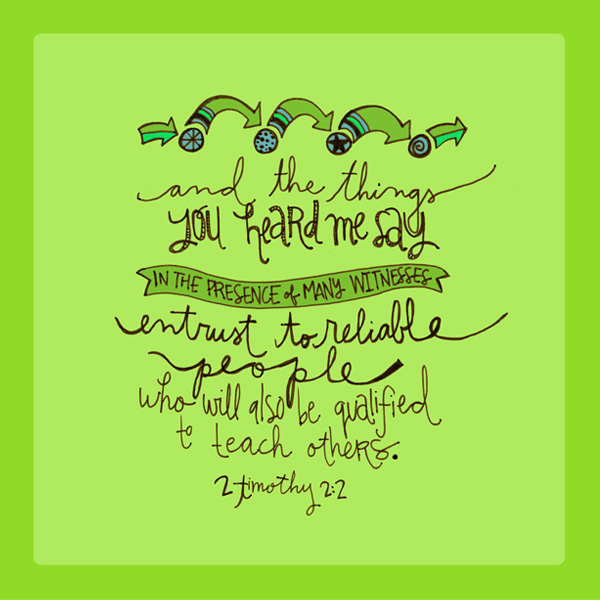 and the things
you heard me say
IN THE PRESENCE of MANY WITNESSES
entrust to reliable
people
who will also be qualified
to teach others.
2 timothy 2:2